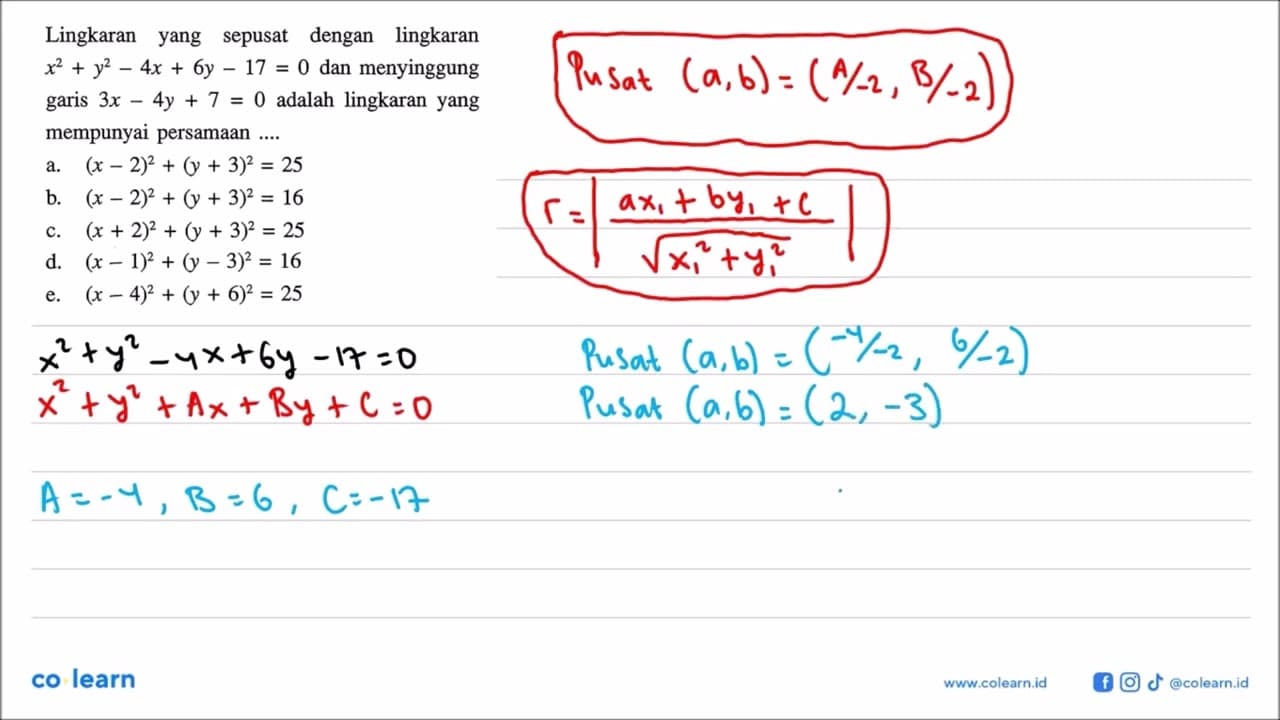 Lingkaran yang sepusat dengan lingkaran
x² + y² – 4x + 6y – 17 = 0 dan menyinggung
garis 3x – 4y + 7 = 0 adalah lingkaran yang
mempunyai persamaan ....
a. (x – 2)² + (y + 3)² = 25
b. (x – 2)² + (y + 3)² = 16
c. (x + 2)² + (y + 3)² = 25
d. (x – 1)² + (y – 3)² = 16
e. (x – 4)² + (y + 6)² = 25
Pusat (a,b) = (A/-2, B/-2)
r = | ax₁ + by₁ + c / √x₁² + y₁² |
x² + y² - 4x + 6y - 17 = 0
x² + y² + Ax + By + C = 0
A = -4, B = 6, C = -17
Pusat (a,b) = (-4/-2, 6/-2)
Pusat (a,b) = (2, -3)
co learn
www.colearn.id
@colearn.id